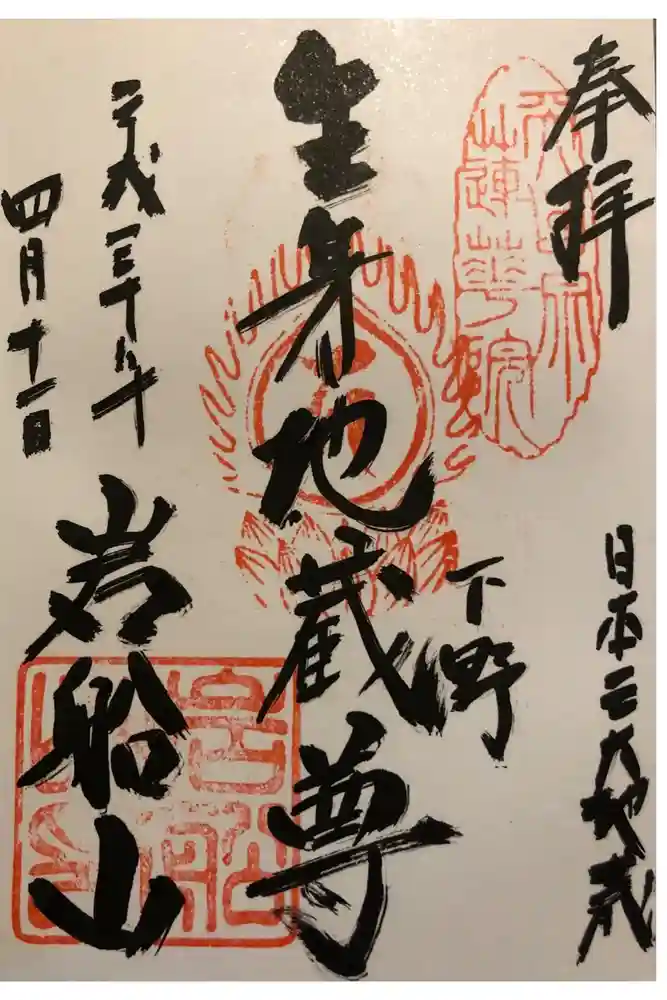 奉拝
山蓮華院
日本三大地蔵
下野
生身地蔵尊
平成二十八年
四月十一日
岩船山